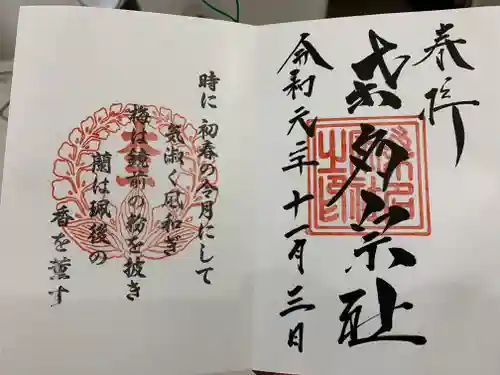 奉拝
宗社
令和元年十一月三日
時に初春の令月にして
気淑く風和ぎ
梅は鏡前の粉を披き
蘭は珮後の
香を薫す